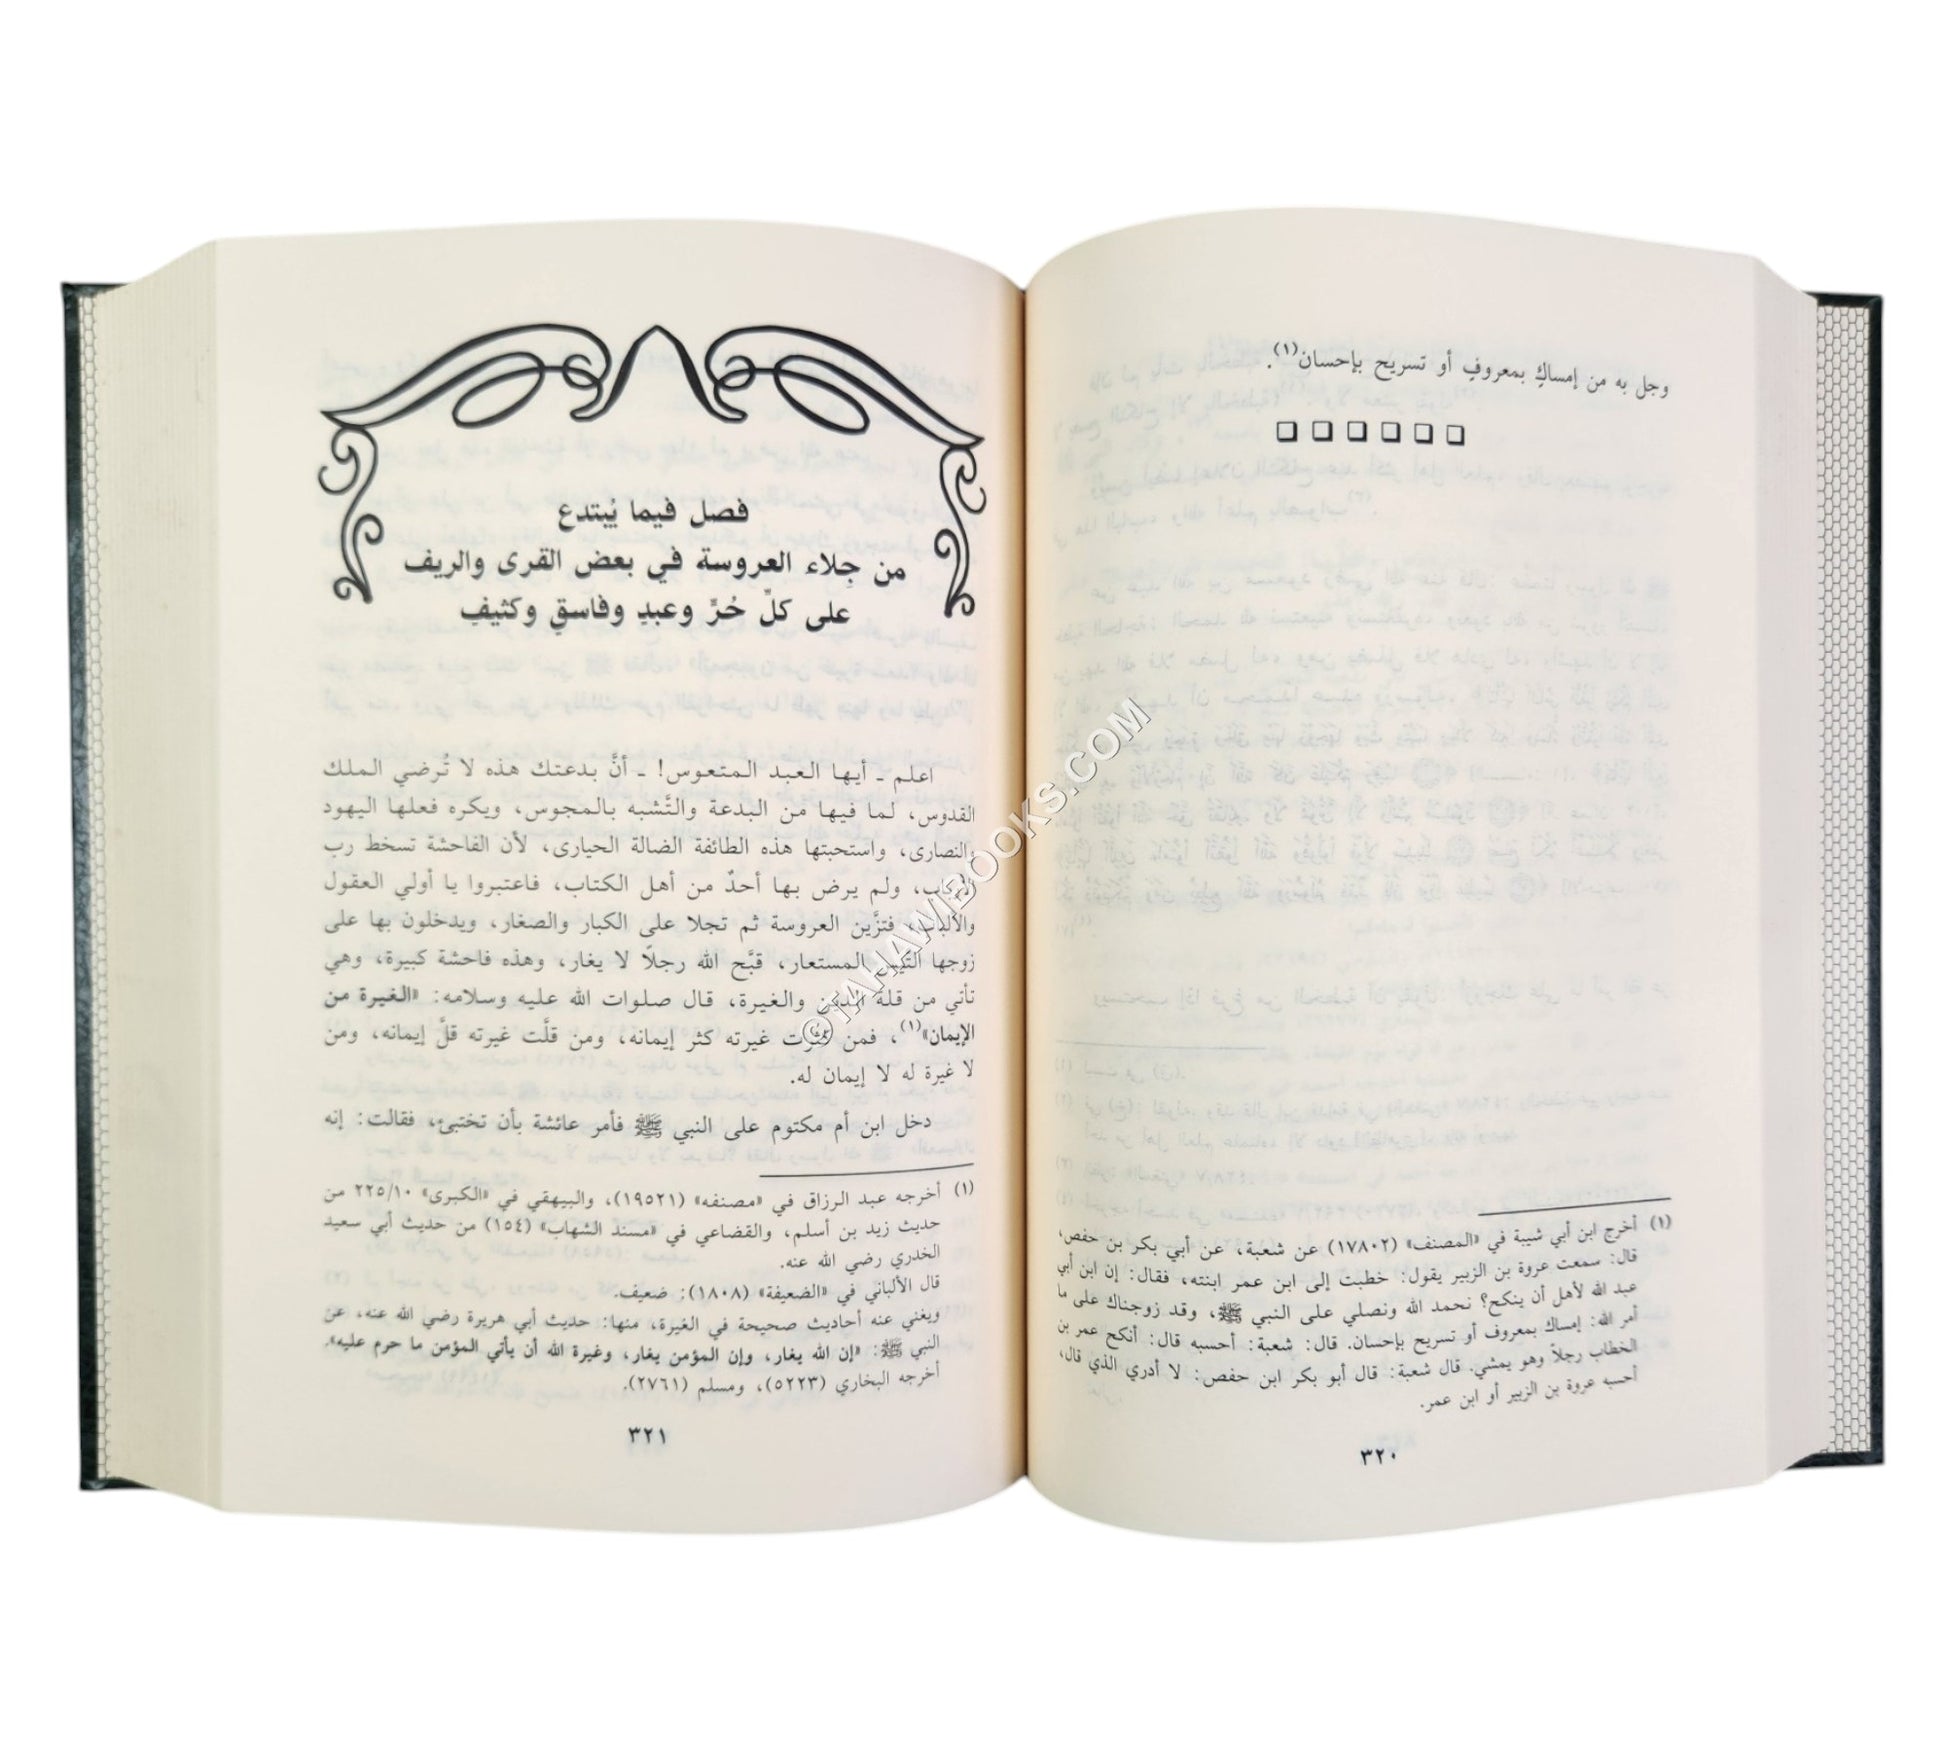 وجل به من إمساكٍ بمعروفٍ أو تسريح بإحسان(١).
(١) أخرج ابن أبي شيبة في «المصنف» (١٧٨٠٢) عن شعبة، عن أبي بكر بن حفص،
قال: سمعت عروة بن الزبير يقول: خطبت إلى ابن عمر ابنته، فقال: إن ابن أبي
عبد الله لأهل أن ينكح؟ نحمد الله ونصلي على النبي ﷺ، وقد زوجناك على ما
أمر الله: إمساك بمعروف أو تسريح بإحسان. قال: شعبة: أحسبه قال: أنكح عمر بن
الخطاب رجلاً وهو يمشي. قال شعبة: قال أبو بكر ابن حفص: لا أدري الذي قال،
أحسبه عروة بن الزبير أو ابن عمر.
٣٢٠
فصل فيما يُبتدع
من جِلاء العروسة في بعض القرى والريف
على كلِّ حُرٍّ وعبدِ وفاسقٍ وكثيفٍ
اعلم ـ أيها العبد المتعوس! ـ أنَّ بدعتك هذه لا تُرضي الملك
القدوس، لما فيها من البدعة والتَّشبه بالمجوس، ويكره فعلها اليهود
والنصارى، واستحبتها هذه الطائفة الضالة الحيارى، لأن الفاحشة تسخط رب
الأرباب، ولم يرض بها أحدٌ من أهل الكتاب، فاعتبروا يا أولي العقول
والألباب، فتزَّين العروسة ثم تجلا على الكبار والصغار، ويدخلون بها على
زوجها التَّيس المستعار، قبَّح الله رجلًا لا يغار، وهذه فاحشة كبيرة، وهي
تأتي من قلة الدين والغيرة، قال صلوات الله عليه وسلامه: «الغيرة من
الإيمان»(١)، فمن كثرت غيرته كثر إيمانه، ومن قلَّت غيرته قلَّ إيمانه، ومن
لا غيرة له لا إيمان له.
دخل ابن أم مكتوم على النبي ﷺ فأمر عائشة بأن تختبئ، فقالت: إنه
(١) أخرجه عبد الرزاق في «مصنفه» (١٩٥٢١)، والبيهقي في «الكبرى» ٢٢٥/١٠ من
حديث زيد بن أسلم، والقضاعي في «مسند الشهاب» (١٥٤) من حديث أبي سعيد
الخدري رضي الله عنه.
قال الألباني في «الضعيفة» (١٨٠٨): ضعيف.
ويغني عنه أحاديث صحيحة في الغيرة، منها: حديث أبي هريرة رضي الله عنه، عن
النبي ﷺ: «إن الله يغار، وإن المؤمن يغار، وغيرة الله أن يأتي المؤمن ما حرم عليه».
أخرجه البخاري (٥٢٢٣)، ومسلم (٢٧٦١).
٣٢١
©TAHAWIBOOKS.COM